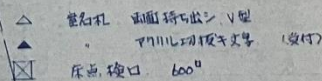 室名札 両面持ち出シ V型
〃 アクリル切抜き文字 (受付)
床点検口 600□